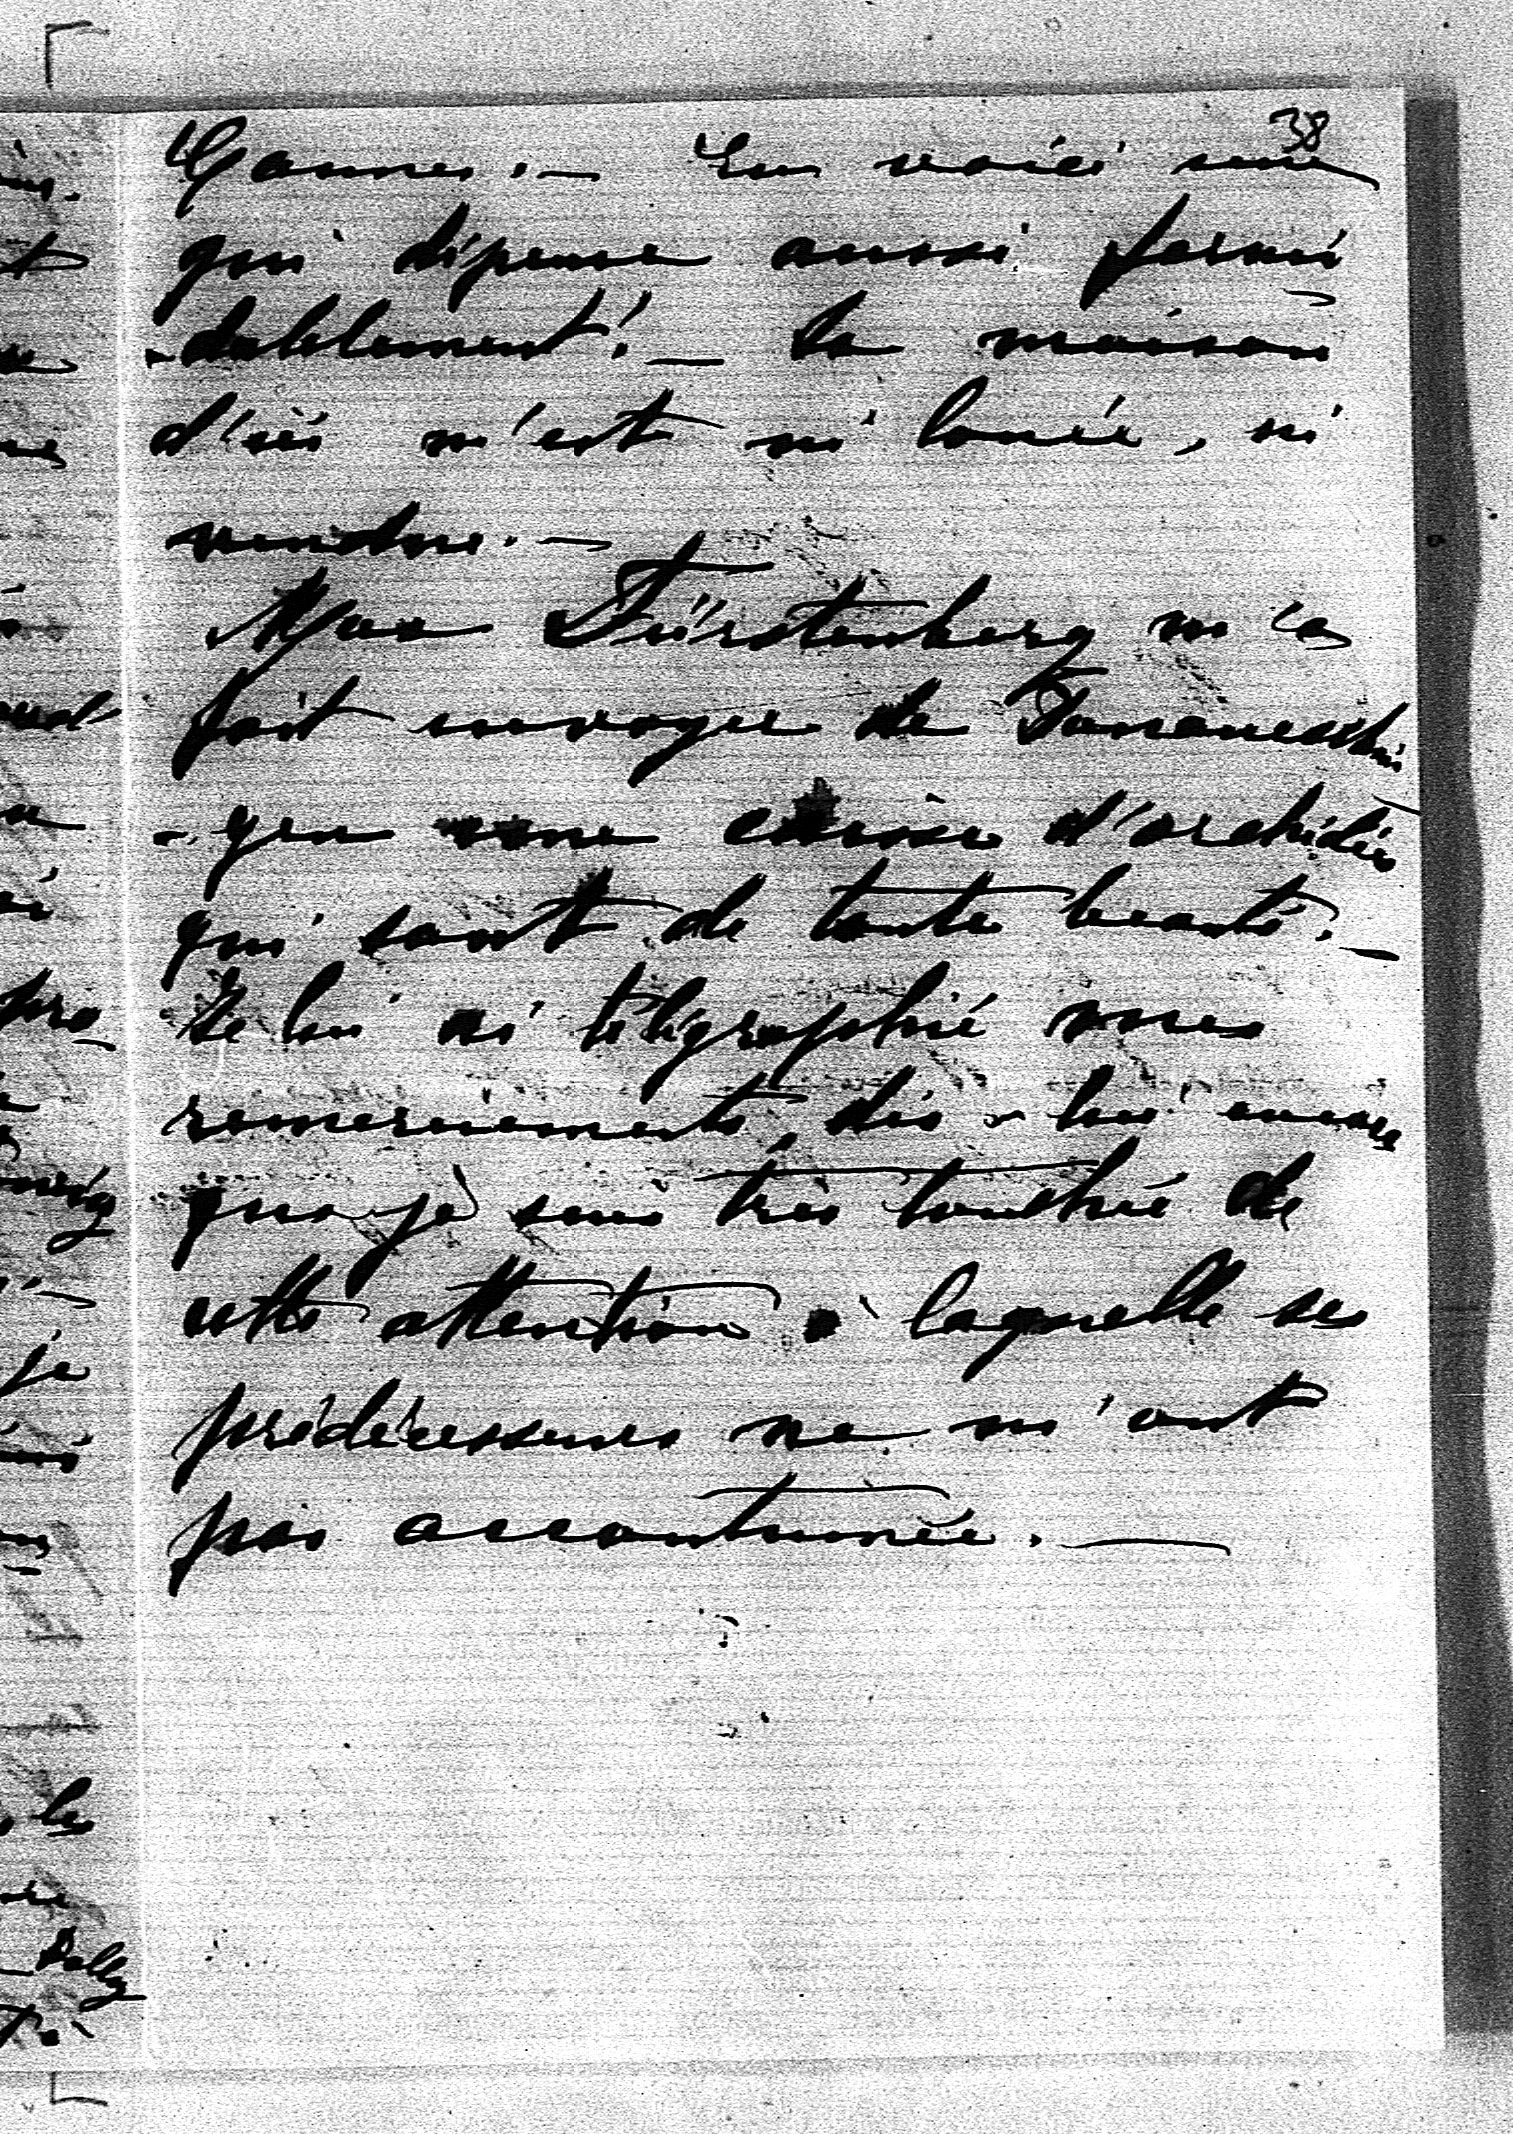 38
Gannes. — En voici une
qui dépense aussi formi
-dablement! — La maison
d'ici n'est ni louée, ni
vendue. —
Max Fürstenberg m'a
fait envoyer de Donaueschin
-gen une caisse d'orchidées
qui sont de toute beauté. —
Je lui ai télégraphié mes
remerciements, dis-lui encore
que je suis très touchée de
cette attention à laquelle ses
prédécesseurs ne m'ont
pas accoutumée. —